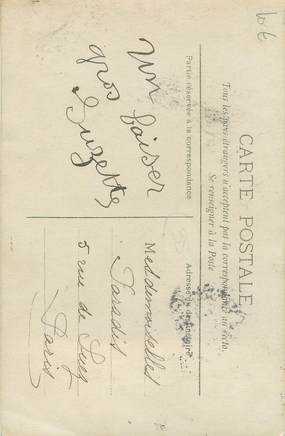 10 €
CARTE POSTALE
Tous les pays étrangers n'acceptent pas la correspondance au recto.
Se renseigner à la Poste
Partie réservée à la correspondance
Adresse du destinataire
Un
gros baiser
Suzette
Mesdemoiselles
Paradis
5 rue de Suez
Paris